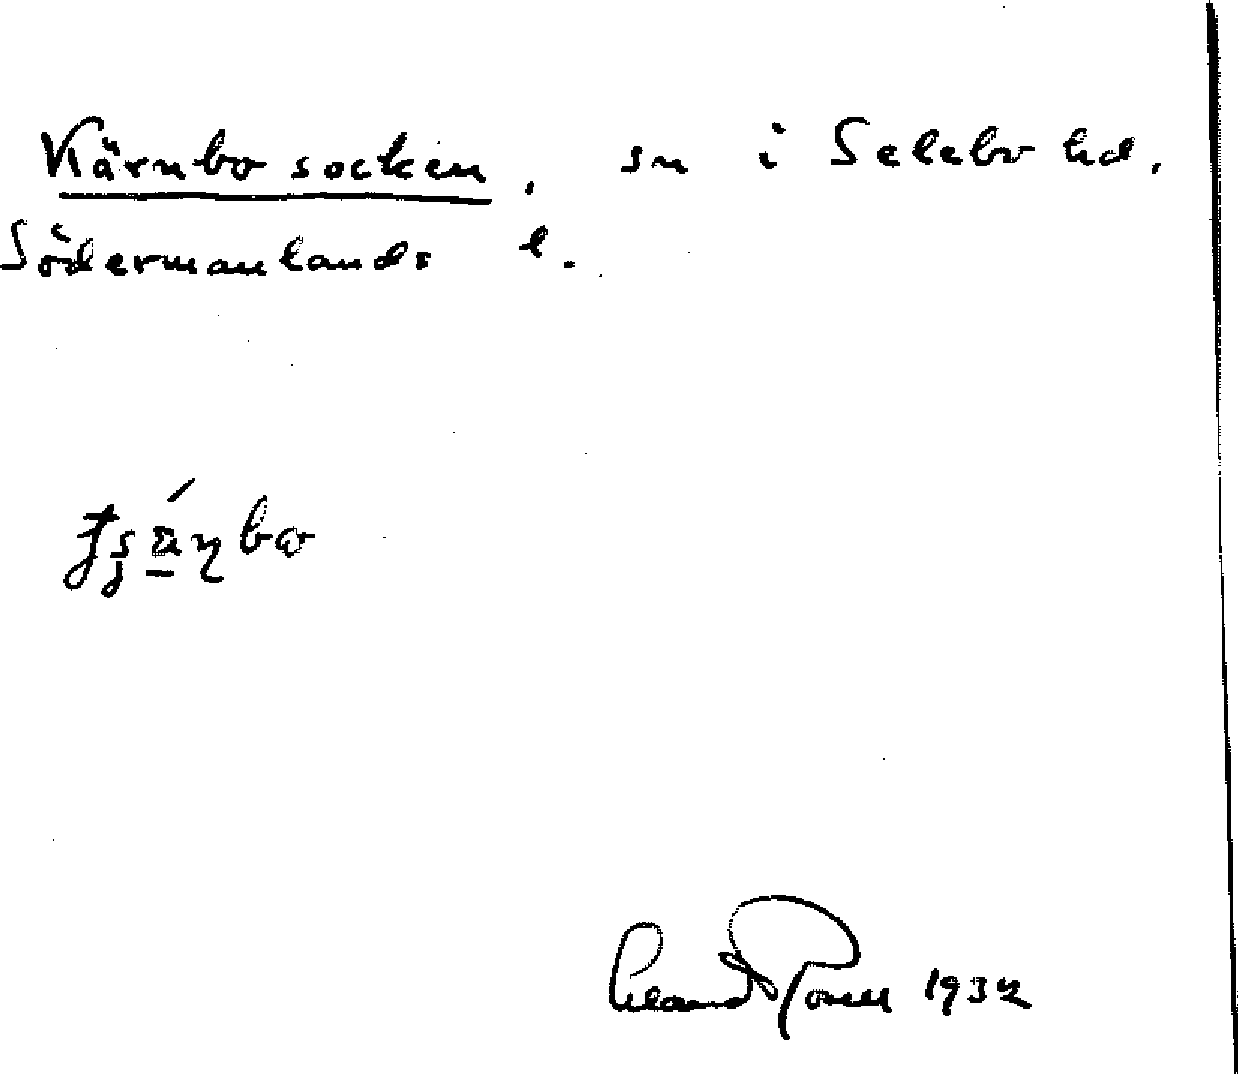 Kärnbo socken, sn i Selebo hd,
Södermanlands l.
1932